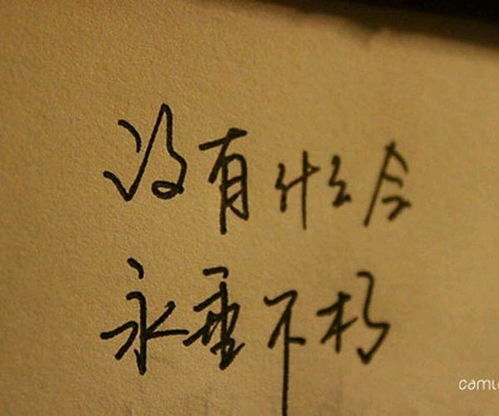 没有什么会
永垂不朽
camu